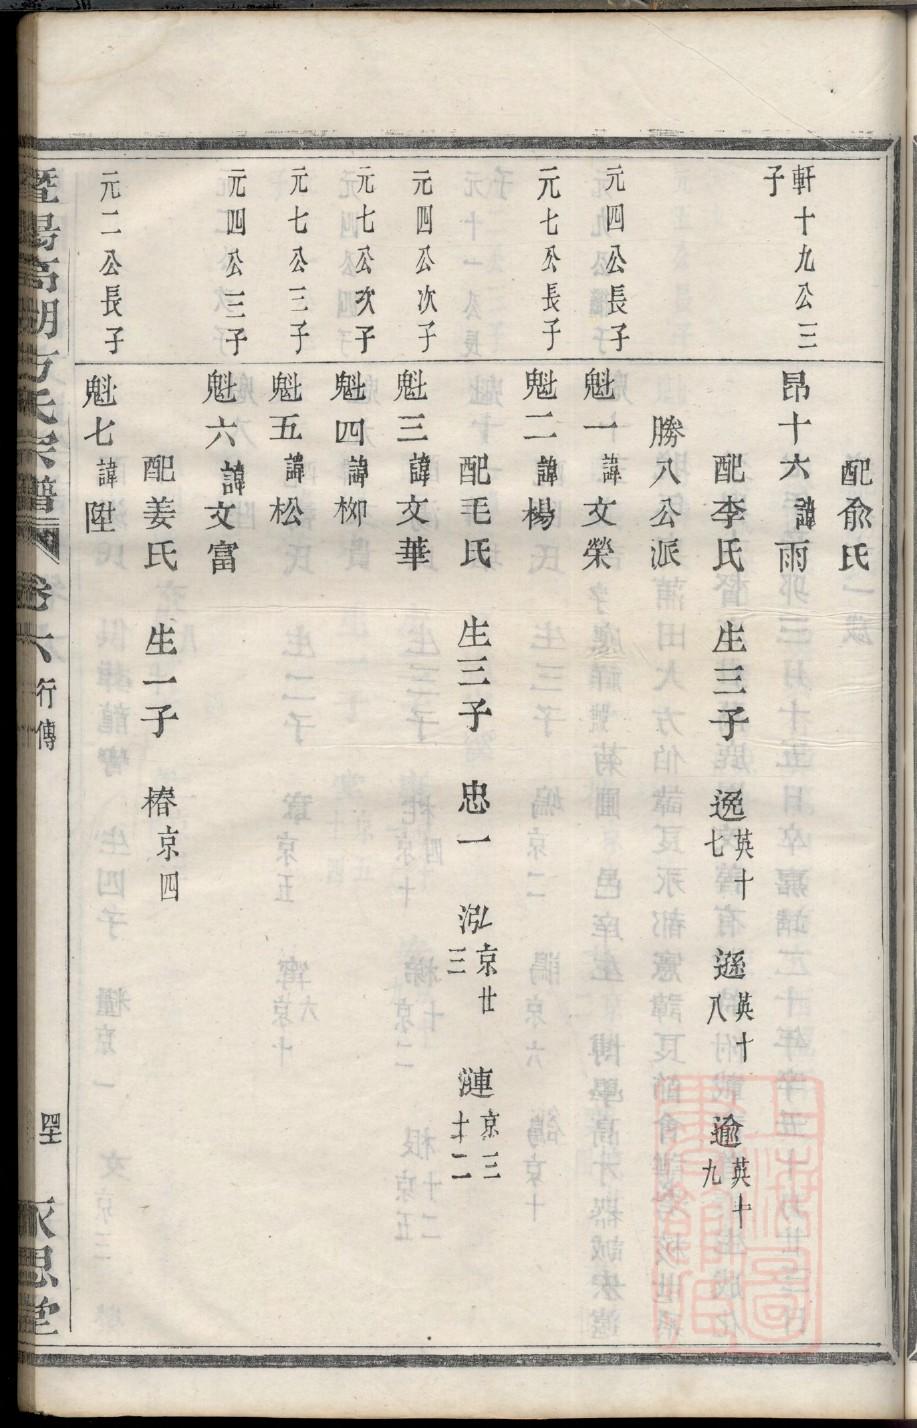 配俞氏
軒十九公三子
昂十六諱雨
配李氏 生三子 逸英十七 遜英十八 逾英十九
勝八公派
元四公長子
魁一諱文榮
元七公長子
魁二諱楊
配毛氏 生三子 忠一 泓京廿三 漣京三十二
元四公次子
魁三諱文華
元七公次子
魁四諱柳
元七公三子
魁五諱松
元四公三子
魁六諱文富
配姜氏 生一子 椿京四
元二公長子
魁七諱陞
暨陽高湖方氏宗譜 卷六 行傳 永思堂